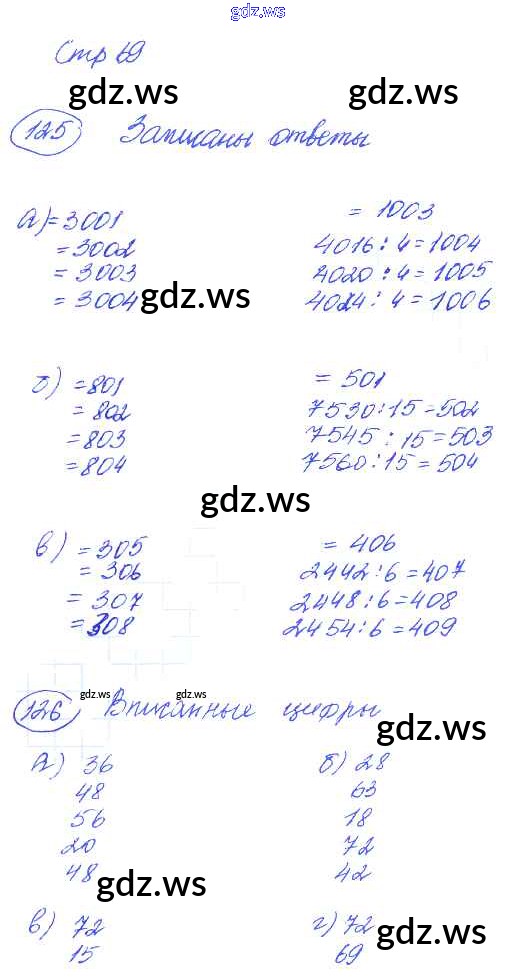 gdz.ws
Стр 69
gdz.ws gdz.ws
125 Записаны ответы
а) = 3001
= 3002
= 3003
= 3004
gdz.ws
= 1003
4016 : 4 = 1004
4020 : 4 = 1005
4024 : 4 = 1006
б) = 801
= 802
= 803
= 804
= 501
7530 : 15 = 502
7545 : 15 = 503
7560 : 15 = 504
gdz.ws
в) = 305
= 306
= 307
= 308
= 406
2442 : 6 = 407
2448 : 6 = 408
2454 : 6 = 409
gdz.ws gdz.ws
126 Вписанные цифры
gdz.ws
а) 36
48
56
20
48
б) 28
63
18
72
42
gdz.ws
в) 72
15
г) 72
69
gdz.ws